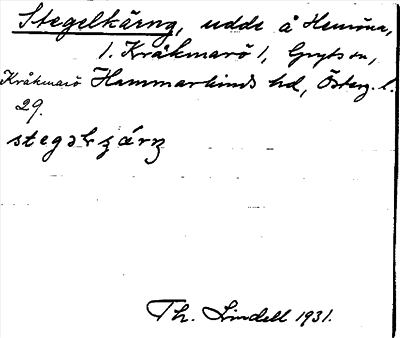 Stegelkärng, udde å Hemöna,
1. Kråkmarö 1, Gryts sn,
Kråkmarö Hammarkinds hd, Österg. l.
29.
Th. Lindell 1931.